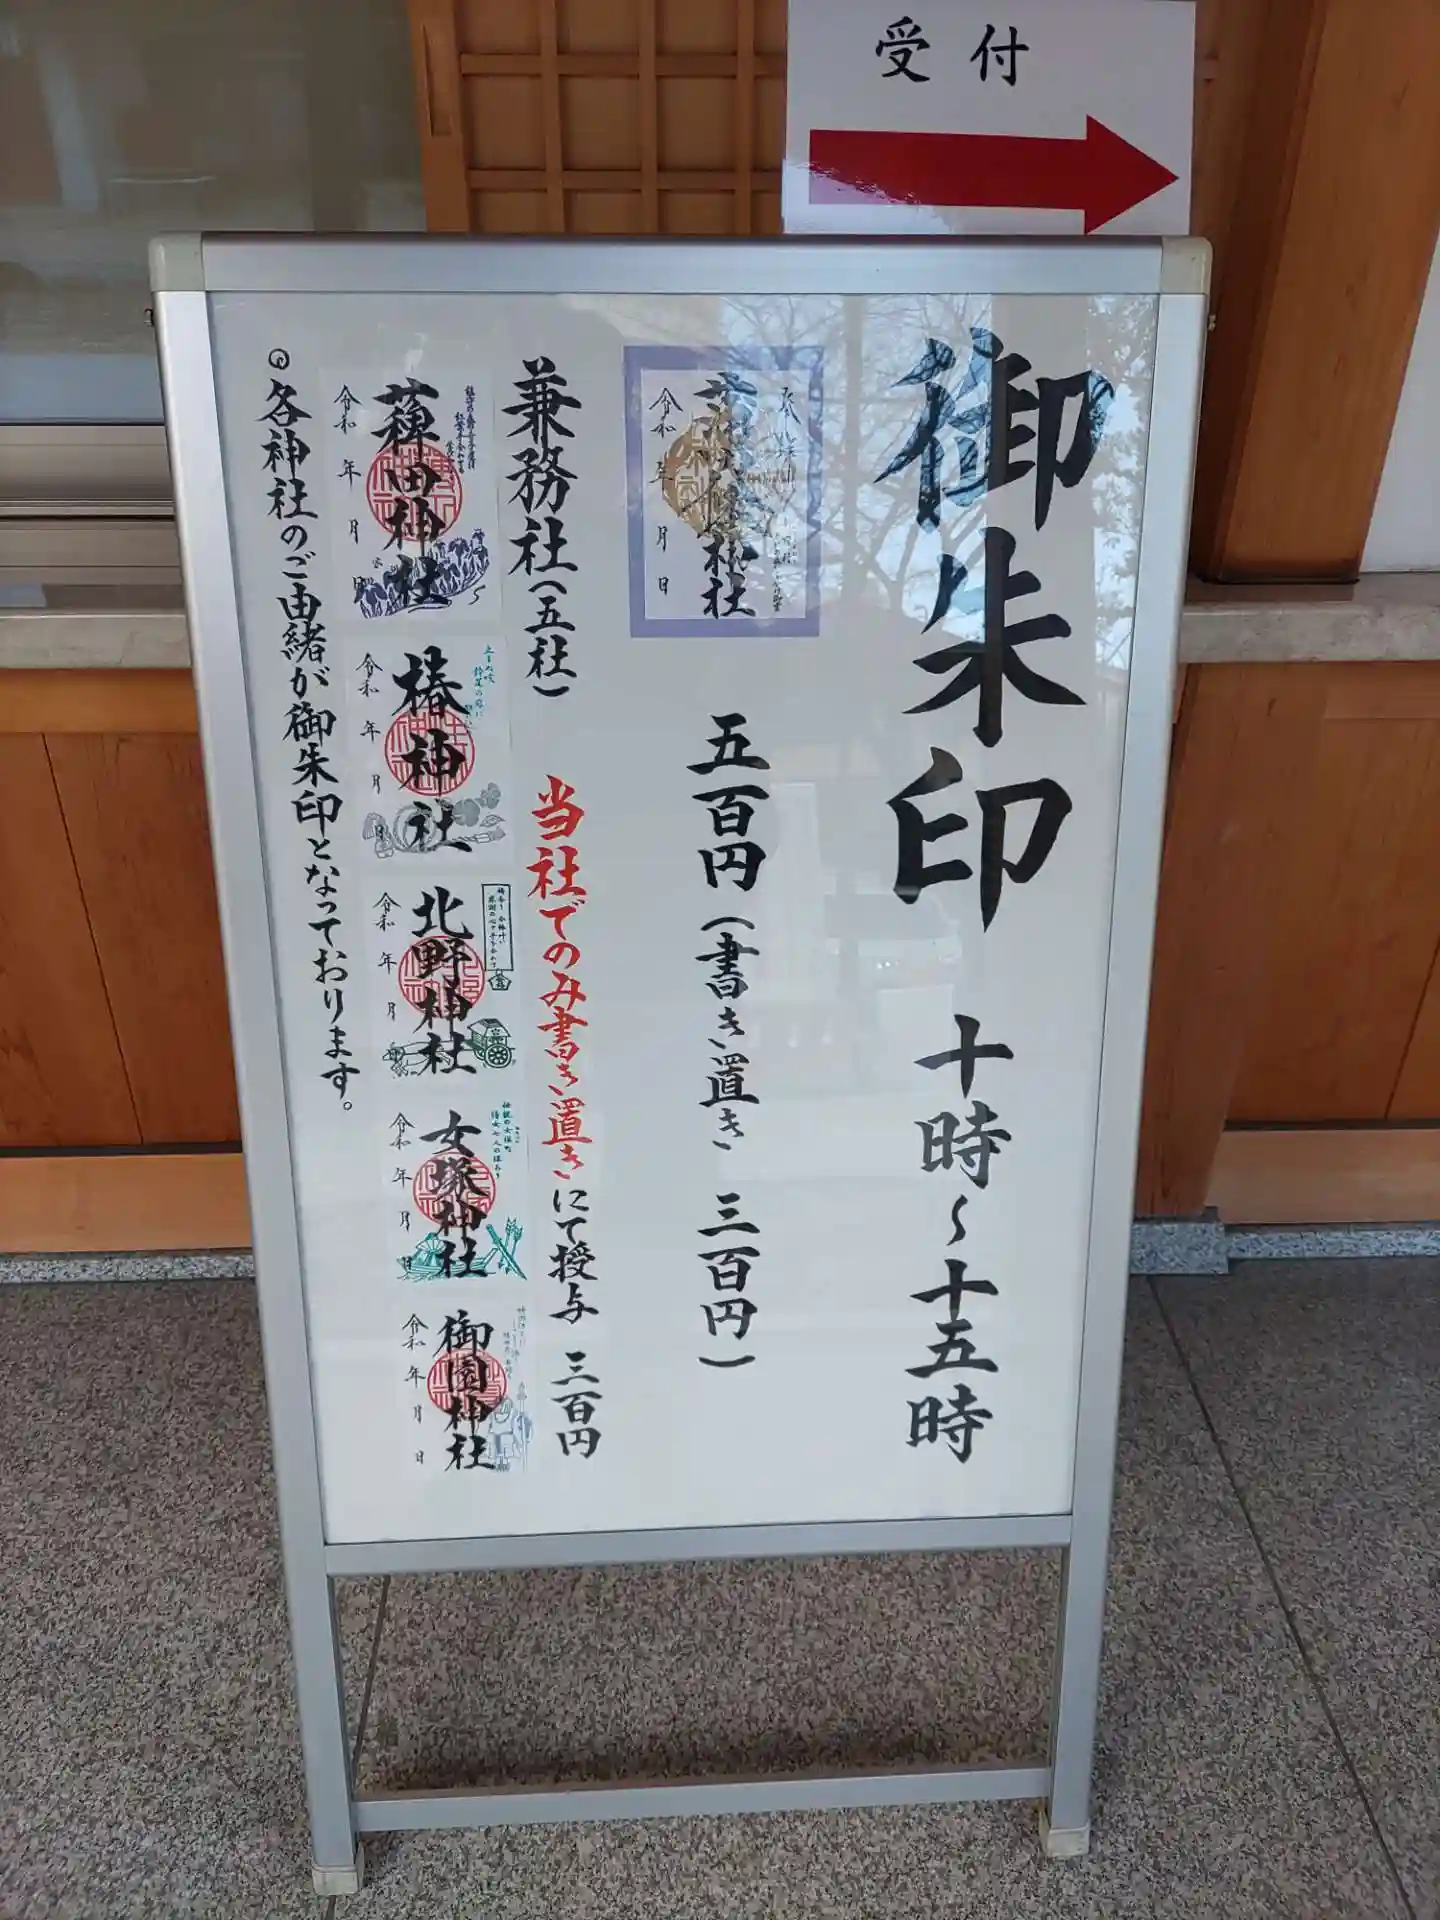 受付
御朱印 十時〜十五時
五百円(書き置き 三百円)
令和 年 月 日
兼務社(五社) 当社でのみ書き置きにて授与 三百円
薭田神社
令和 年 月 日
椿神社
令和 年 月 日
北野神社
令和 年 月
女塚神社
令和 年 月 日
御園神社
令和 年 月 日
各神社のご由緒が御朱印となっております。